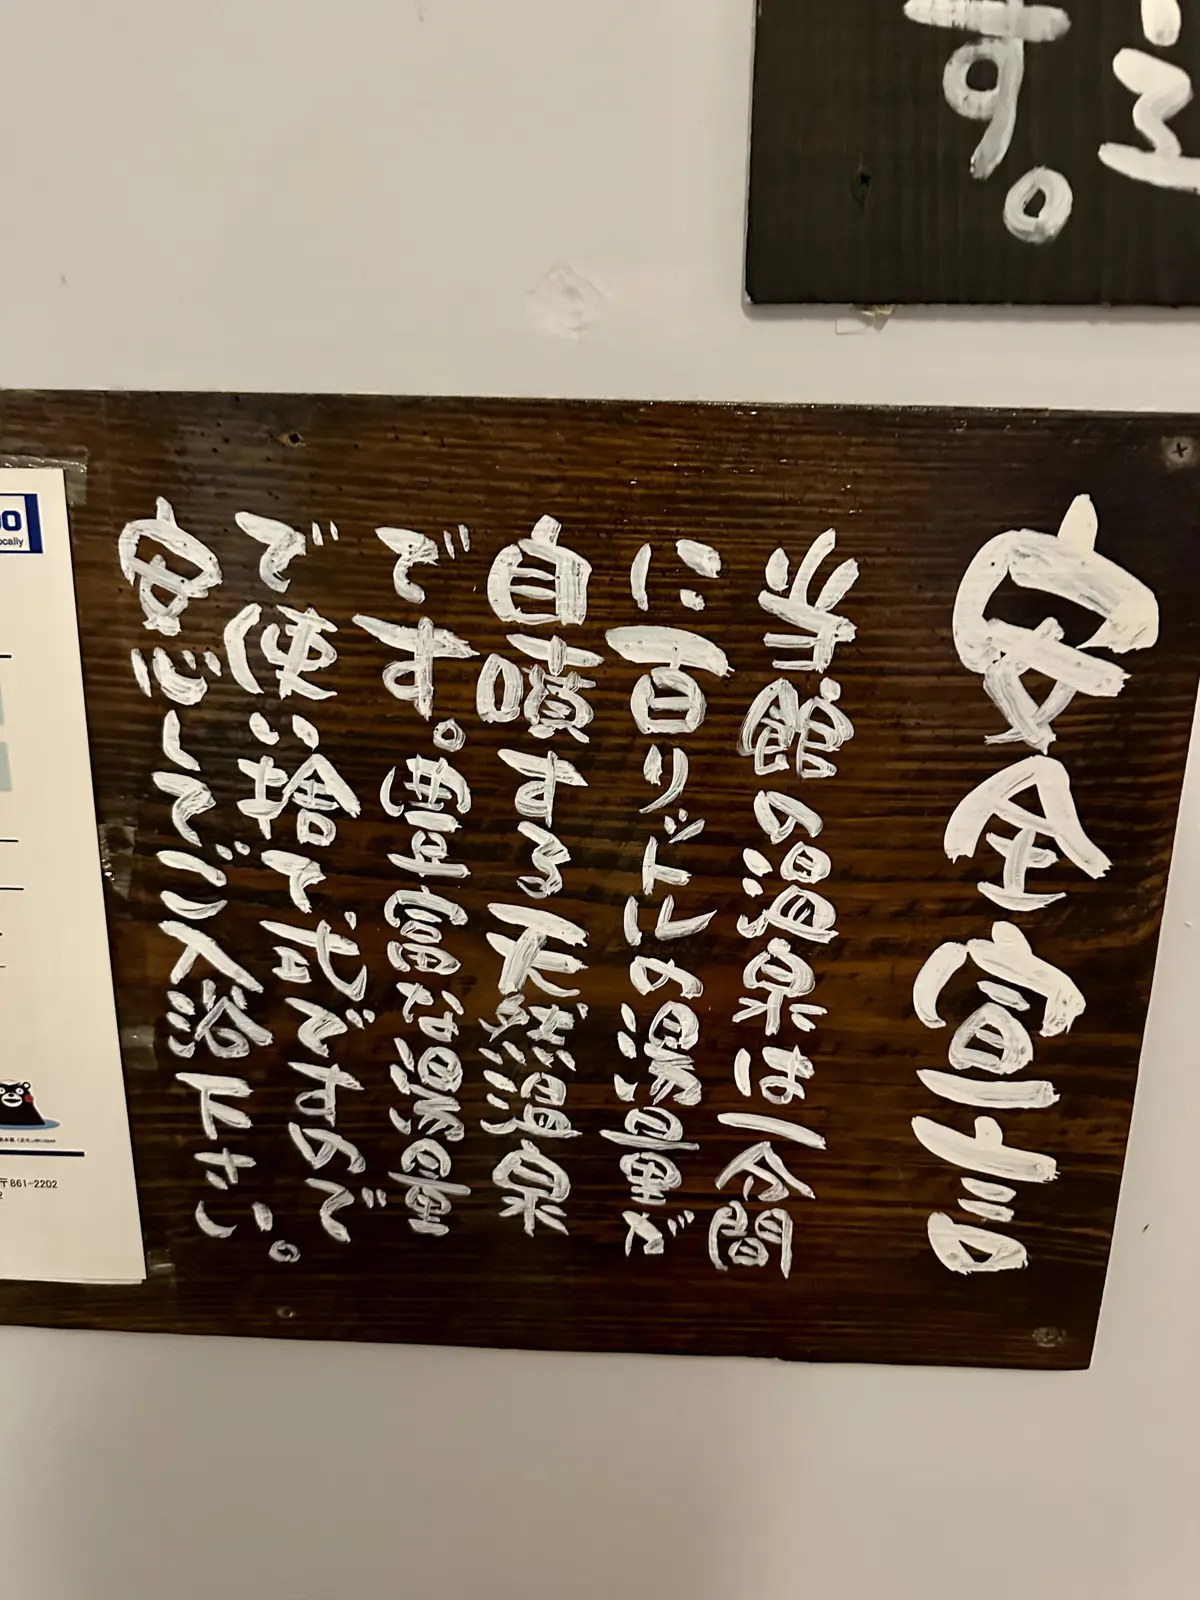 す。
安全宣言
当館の温泉は一分間
に一百リットルの湯量が
自噴する天然温泉
です。豊富な湯量
で使い捨て状態ですので
安心してご入浴下さい。
ocally
〒861-2202